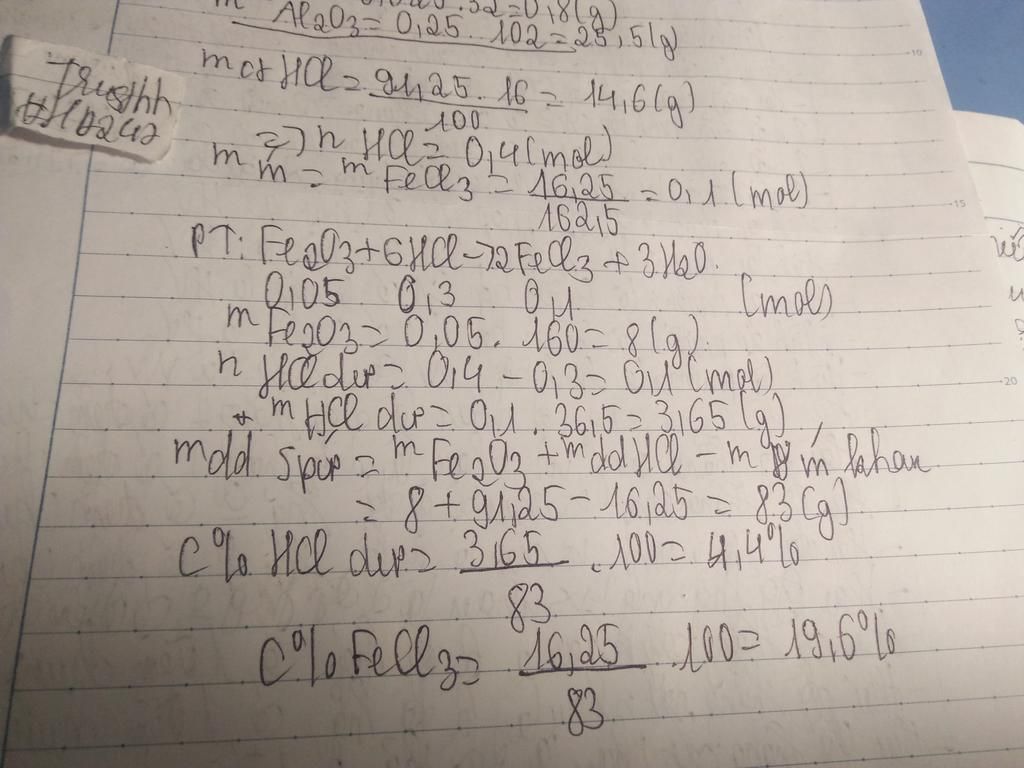 .32=0,8(g)
m Al2O3=0,25.102=25,5(g)
m ct HCl=91,25.16/100=14,6(g)
=>n HCl=0,4(mol)
m m=m FeCl3=16,25/162,5=0,1(mol)
PT: Fe2O3+6HCl->2FeCl3+3H2O.
0,05 0,3 0,1 (mol)
m Fe2O3=0,05.160=8(g)
n HCl dư=0,4-0,3=0,1(mol)
m HCl dư=0,1.36,5=3,65(g)
mdd spư=m Fe2O3+mddHCl-m khan
=8+91,25-16,25=83(g)
C% HCl dư=3,65/83.100=4,4%
C% FeCl3=16,25/83 100=19,6%
10
15
20